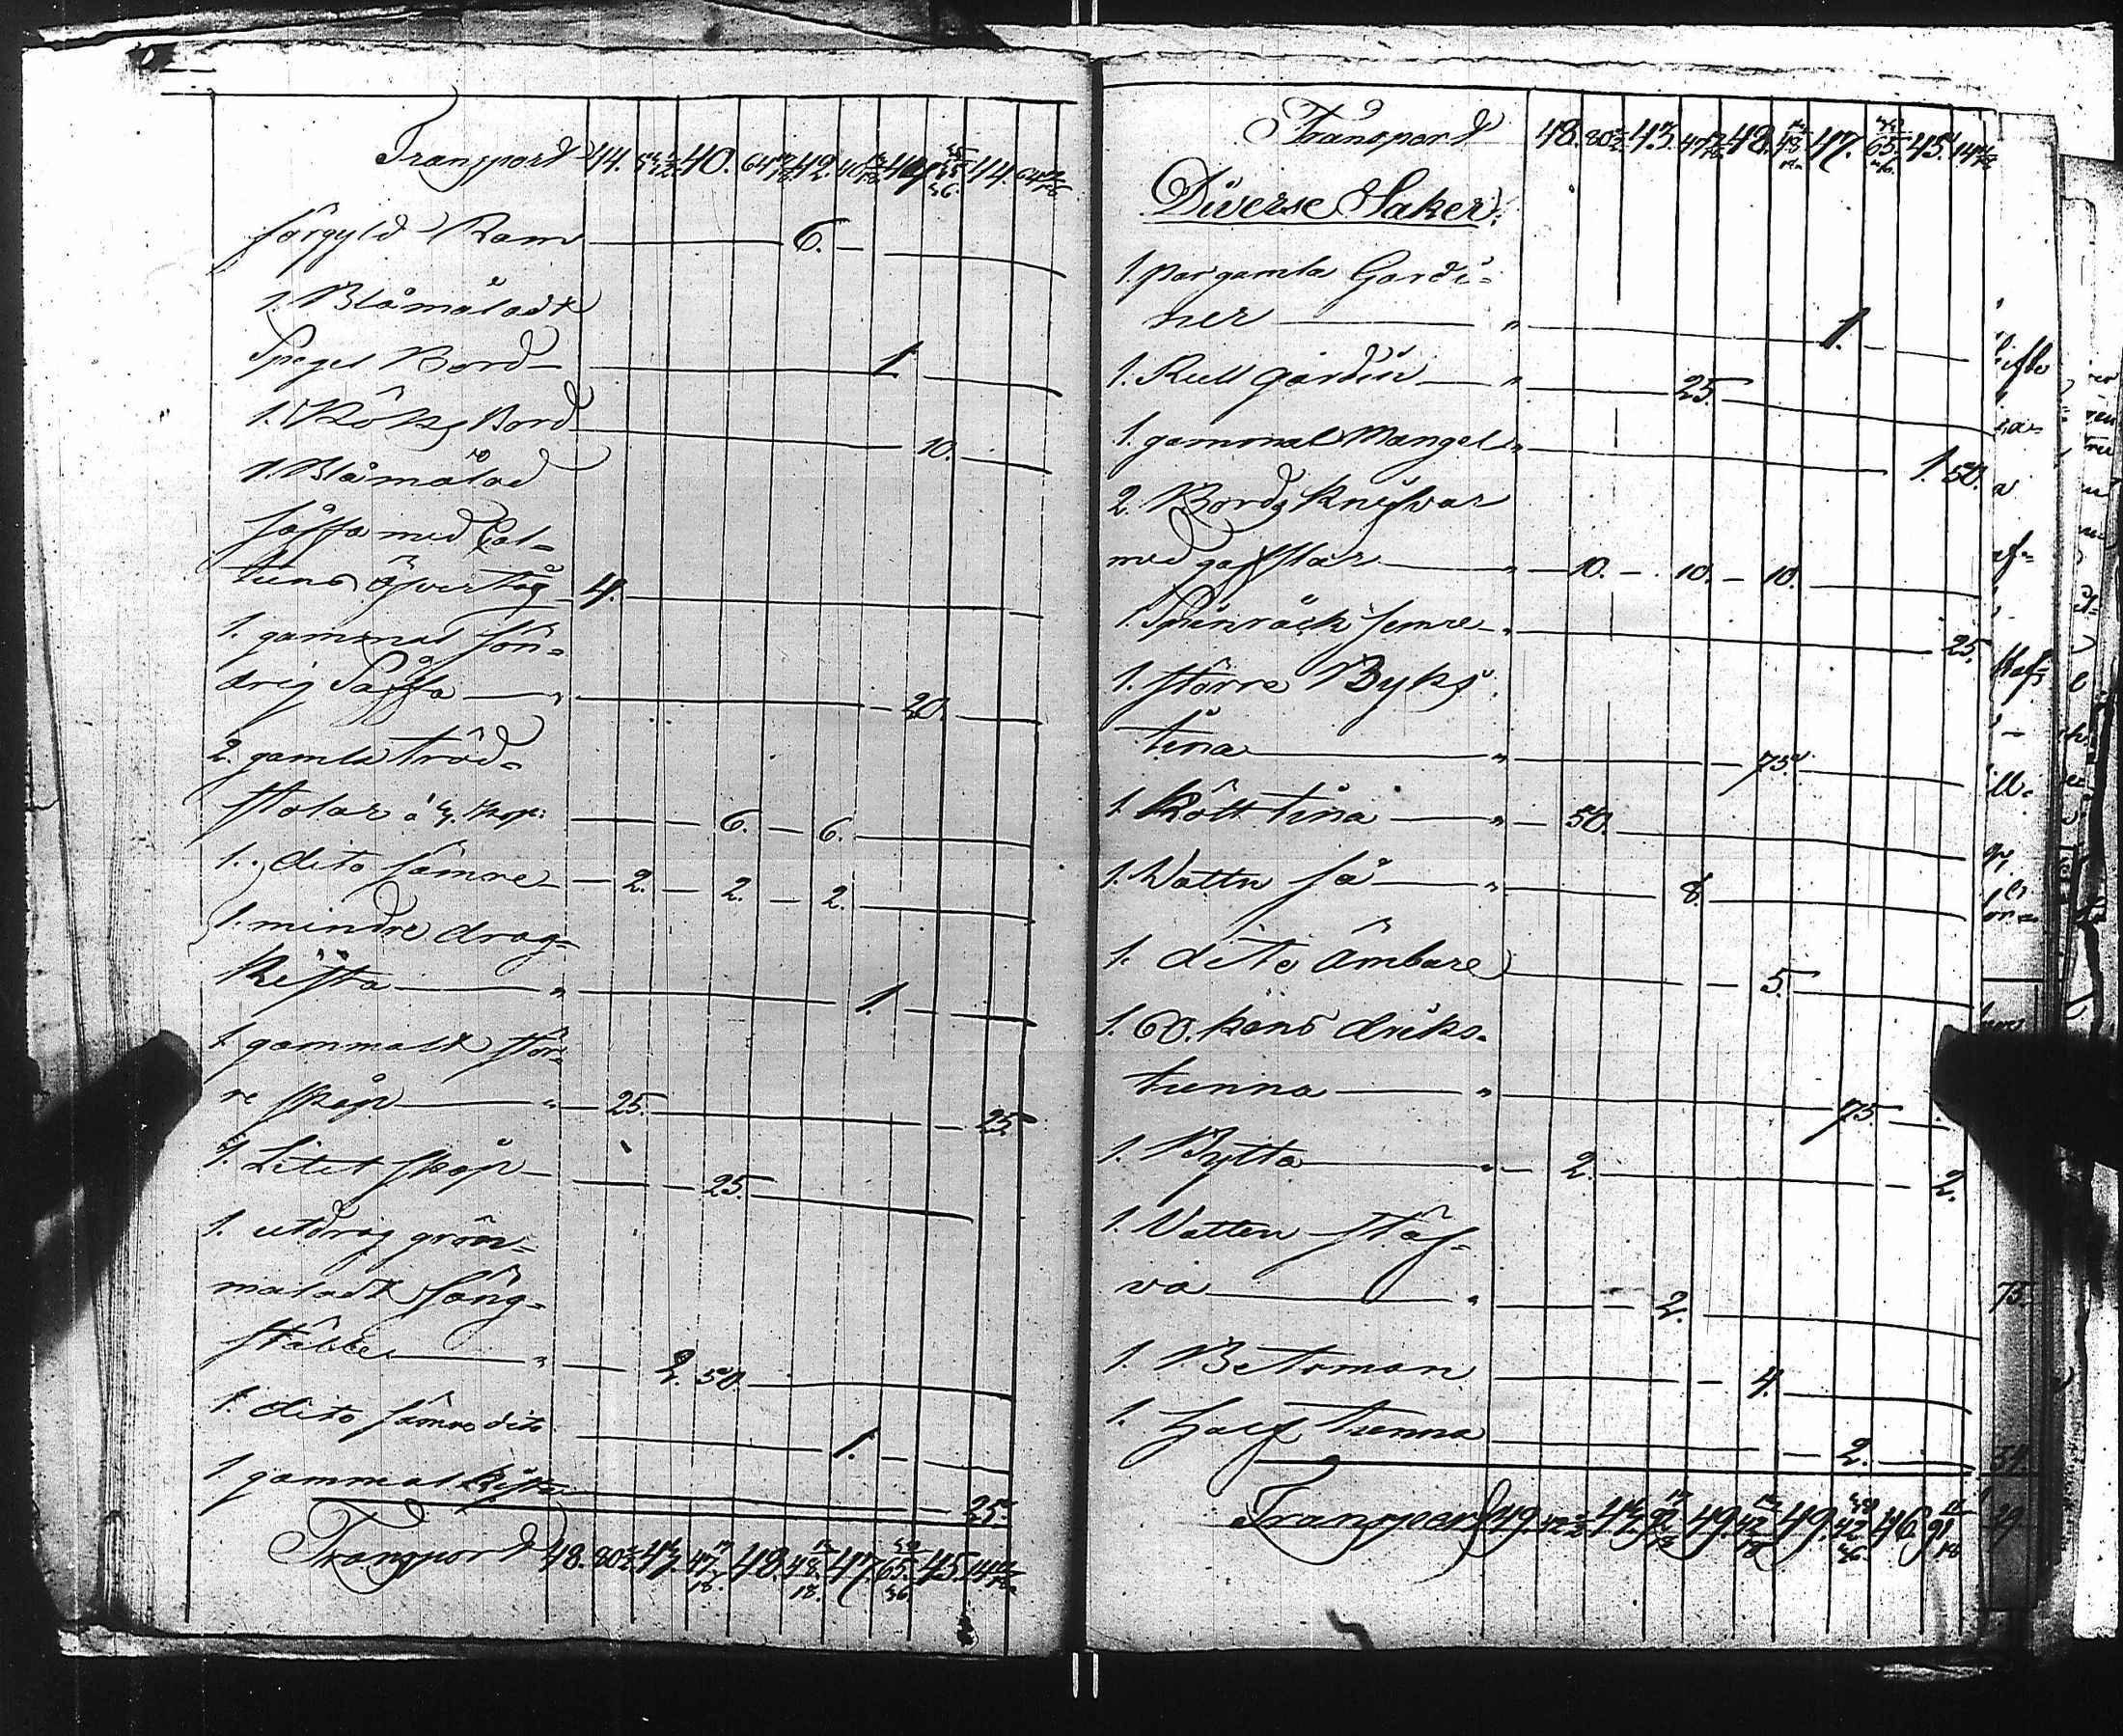 Transport 44. 40. 64 42.
förgyld Ram 6.
1. Blåmåladt
Spegel Bord 1
1. Köks Bord 10.
1. Blåmålad
såffa med Cat=
tuns öfvertåg 4.
1. gammal sön=
drig Såffa 20.
2. gamla träd=
stolar 6. 6.
1. dito sämre 2. 2. 2.
1. mindre drag=
kista 1.
1. gammalt stör=
re skåp 25. 25.
1. Litet skåp 25.
1. utdrag grön=
måladt säng=
ställe 2. 50.
1. dito sämre dito 1.
1 gammal kista 25.
Transport 48. 80 43. 47 48. 48. 47. 65. 45. 14
Transport 48. 80 43. 47 48. 48 47. 65. 45. 14
Diverse Saker.
1. par gamla Gardi=
ner 1.
1. Rull gardin 25.
1. gammal Mangel 1. 50.
2. Bords knifvar
med gafflar 10. 10. 10.
1. Spinräck semre 25.
1. större Byks
tina 75.
1. Kött tina 50.
1. Vatten så 8.
1. dito ämbare 5.
1. 60. kans driks=
tunna 75.
1. Bytta 2. 2.
1. Vatten stäf=
va 2.
1. Betsman 4.
1. Half tunna 2.
Transport 49. 42 44. 92 49. 42 49. 42 46. 91